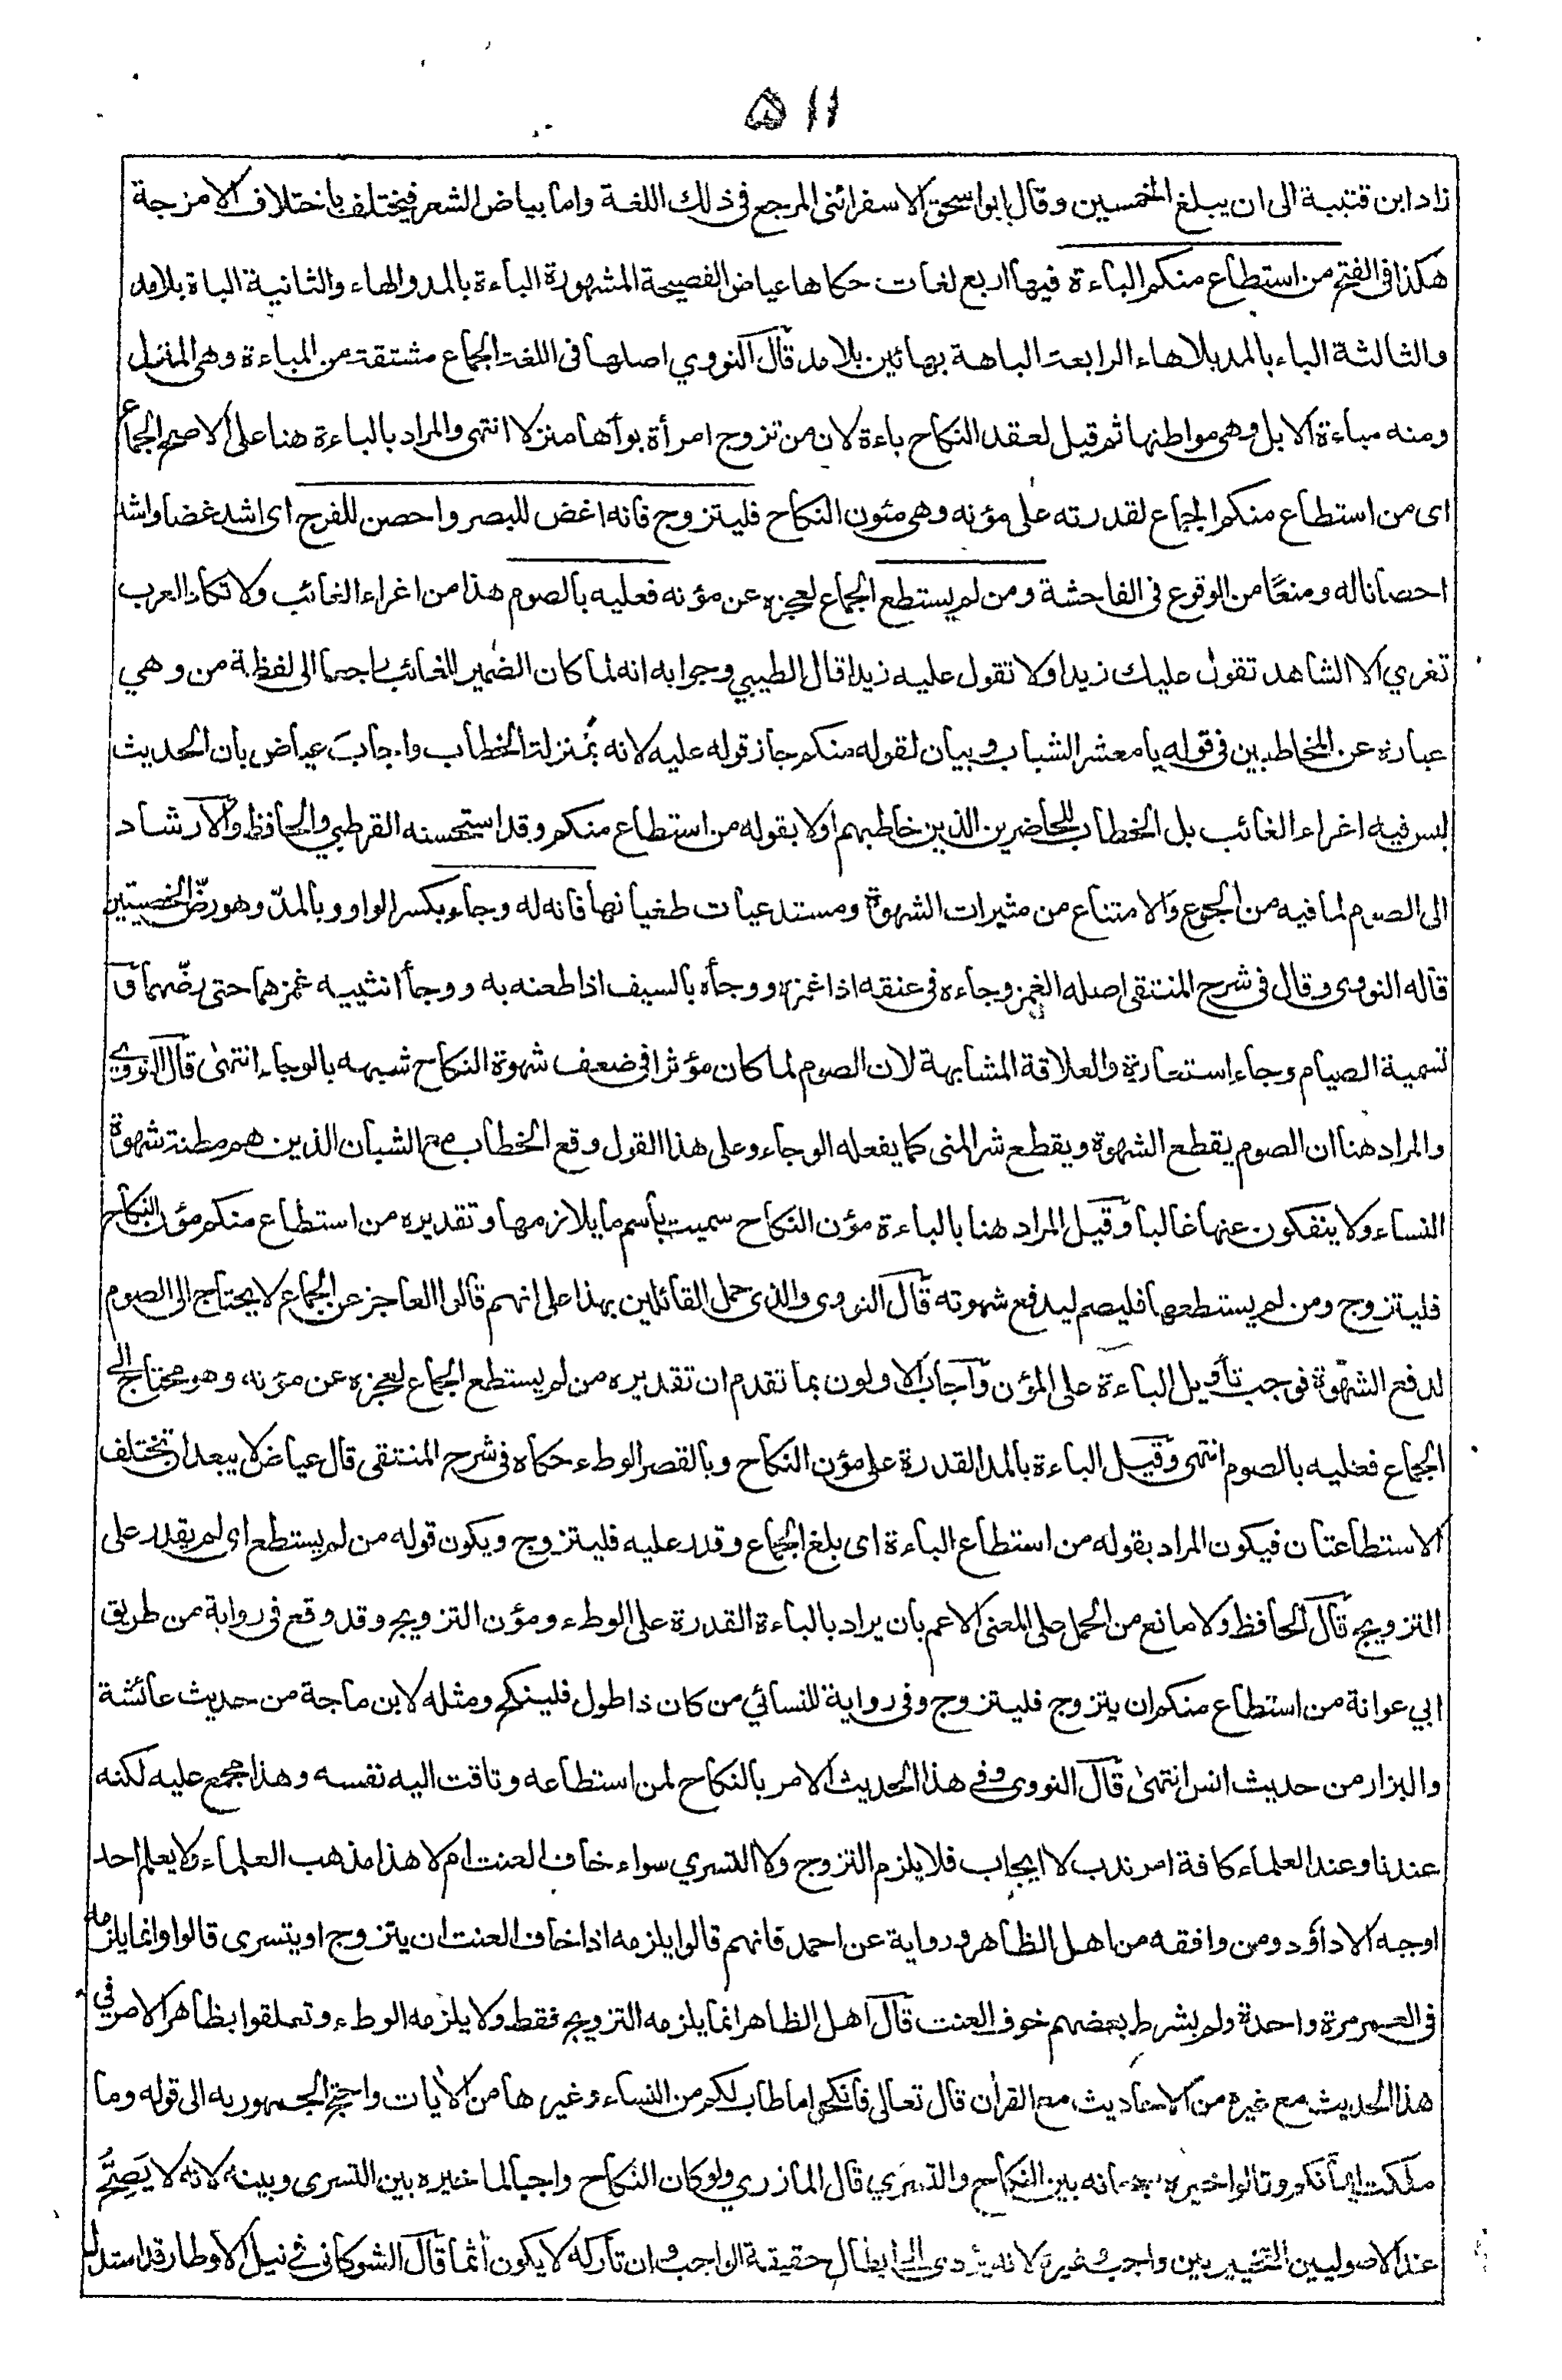 ۵۱۱
زاد ابن قتيبة الى ان يبلغ الخمسين وقال ابو اسحق الاسفرائنى المرجع فى ذلك اللغة واما بياض الشعر فيختلف باختلاف الامزجة
هكذا فى الفتح من استطاع منكم الباءة فيها اربع لغات حكاها عياض الفصيحة المشهورة الباءة بالمد والهاء والثانية الباة بلا مد
والثالثة الباء بالمد بلا هاء الرابعة الباهة بهائين بلا مد قال النووي اصلها فى اللغة الجماع مشتقة من المباءة وهى المنزل
ومنه مباءة الابل وهى مواطنها ثم قيل لعقد النكاح باءة لان من تزوج امرأة بوأها منزلا انتهى والمراد بالباءة هنا على الاصح الجماع
اى من استطاع منكم الجماع لقدرته على مؤنه وهى مئون النكاح فليتزوج فانه اغض للبصر واحصن للفرج اى اشد غضا واشد
احصانا له ومنعًا من الوقوع فى الفاحشة ومن لم يستطع الجماع لعجزه عن مؤنه فعليه بالصوم هذا من اغراء الغائب ولا تكاد العرب
تغري الا الشاهد تقول عليك زيدا ولا تقول عليه زيدا قال الطيبي وجوابه انه لما كان الضمير الغائب راجعا الى لفظة من وهي
عبارة عن المخاطبين فى قوله يا معشر الشباب وبيان لقوله منكم جاز قوله عليه لانه بمنزلة الخطاب واجاب عياض بان الحديث
ليس فيه اغراء الغائب بل الخطاب للحاضرين الذين خاطبهم اولا بقوله من استطاع منكم وقد استحسنه القرطبي والحافظ والارشاد
الى الصوم لما فيه من الجوع والامتناع من مثيرات الشهوة ومستدعيات طغيانها فانه له وجاء بكسر الواو وبالمدّ وهو رضّ الخصيتين
قاله النووى وقال فى شرح المنتقى اصله الغمز وجاءه فى عنقه اذا غمزه ووجأه بالسيف اذا طعنه به ووجأ انثييه غمزهما حتى رضّهما ق
تسمية الصيام وجاء استعارة والعلاقة المشابهة لان الصوم لما كان مؤثرا فى ضعف شهوة النكاح شبهه بالوجاء انتهى قال النووي
والمراد هنا ان الصوم يقطع الشهوة ويقطع شر المنى كما يفعله الوجاء وعلى هذا القول وقع الخطاب مع الشبان الذين هم مظنة شهوة
النساء ولا ينفكون عنها غالبا وقيل المراد هنا بالباءة مؤن النكاح سميت باسم ما يلازمها وتقديره من استطاع منكم مؤن النكاح
فليتزوج ومن لم يستطعها فليصم ليدفع شهوته قال النووى والذى حمل القائلين بهذا على انهم قالوا العاجز عن الجماع لا يحتاج الى الصوم
لدفع الشهوة فوجب تأويل الباءة على المؤن وأجاب الاولون بما تقدم ان تقديره من لم يستطع الجماع لعجزه عن مؤنه، وهو محتاج الى
الجماع فعليه بالصوم انتهى وقيل الباءة بالمد القدرة على مؤن النكاح وبالقصر الوطء حكاه فى شرح المنتقى قال عياض لا يبعد ان تختلف
الاستطاعتان فيكون المراد بقوله من استطاع الباءة اى بلغ الجماع وقدر عليه فليتزوج ويكون قوله من لم يستطع اى لم يقدر على
التزويج قال الحافظ ولا مانع من الحمل على المعنى الاعم بان يراد بالباءة القدرة على الوطء ومؤن التزويج وقد وقع فى رواية من طريق
ابي عوانة من استطاع منكم ان يتزوج فليتزوج وفى رواية للنسائي من كان ذا طول فلينكح ومثله لابن ماجة من حديث عائشة
والبزار من حديث انس انتهى قال النووى وفي هذا الحديث الامر بالنكاح لمن استطاعه وتاقت اليه نفسه وهذا مجمع عليه لكنه
عندنا وعند العلماء كافة امر ندب لا ايجاب فلا يلزم التزوج ولا التسري سواء خاف العنت ام لا هذا مذهب العلماء ولا يعلم احد
اوجبه الا داؤد ومن وافقه من اهل الظاهر ورواية عن احمد فانهم قالوا يلزمه اذا خاف العنت ان يتزوج او يتسرى قالوا وانما يلزمه
فى العمر مرة واحدة ولم يشرط بعضهم خوف العنت قال اهل الظاهر انما يلزمه التزويج فقط ولا يلزمه الوطء وتعلقوا بظاهر الامر في
هذا الحديث مع غيره من الاحاديث مع القرأن قال تعالى فانكحوا ما طاب لكم من النساء وغيرها من الأيات واحتج الجمهور به الى قوله وما
ملكت ايمانكم وقالوا خيره سبحانه بين النكاح والتسري قال المازري ولو كان النكاح واجبا لما خيره بين التسرى وبينه لانه لا يَصِحُّ
عند الاصوليين التخيير بين واجب وغيره لانه يؤدى الى ابطال حقيقة الواجب وان تاركه لا يكون أثما قال الشوكانى في نيل الاوطار قد استدل